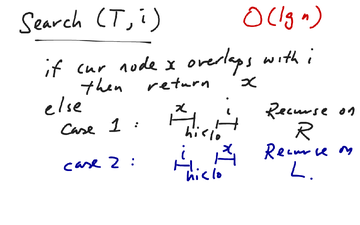 Search (T, i)
O(lg n)
if cur node x overlaps with i
then return x
else
case 1 : x hi<lo i Recurse on R
case 2 : i hi<lo x Recurse on L.